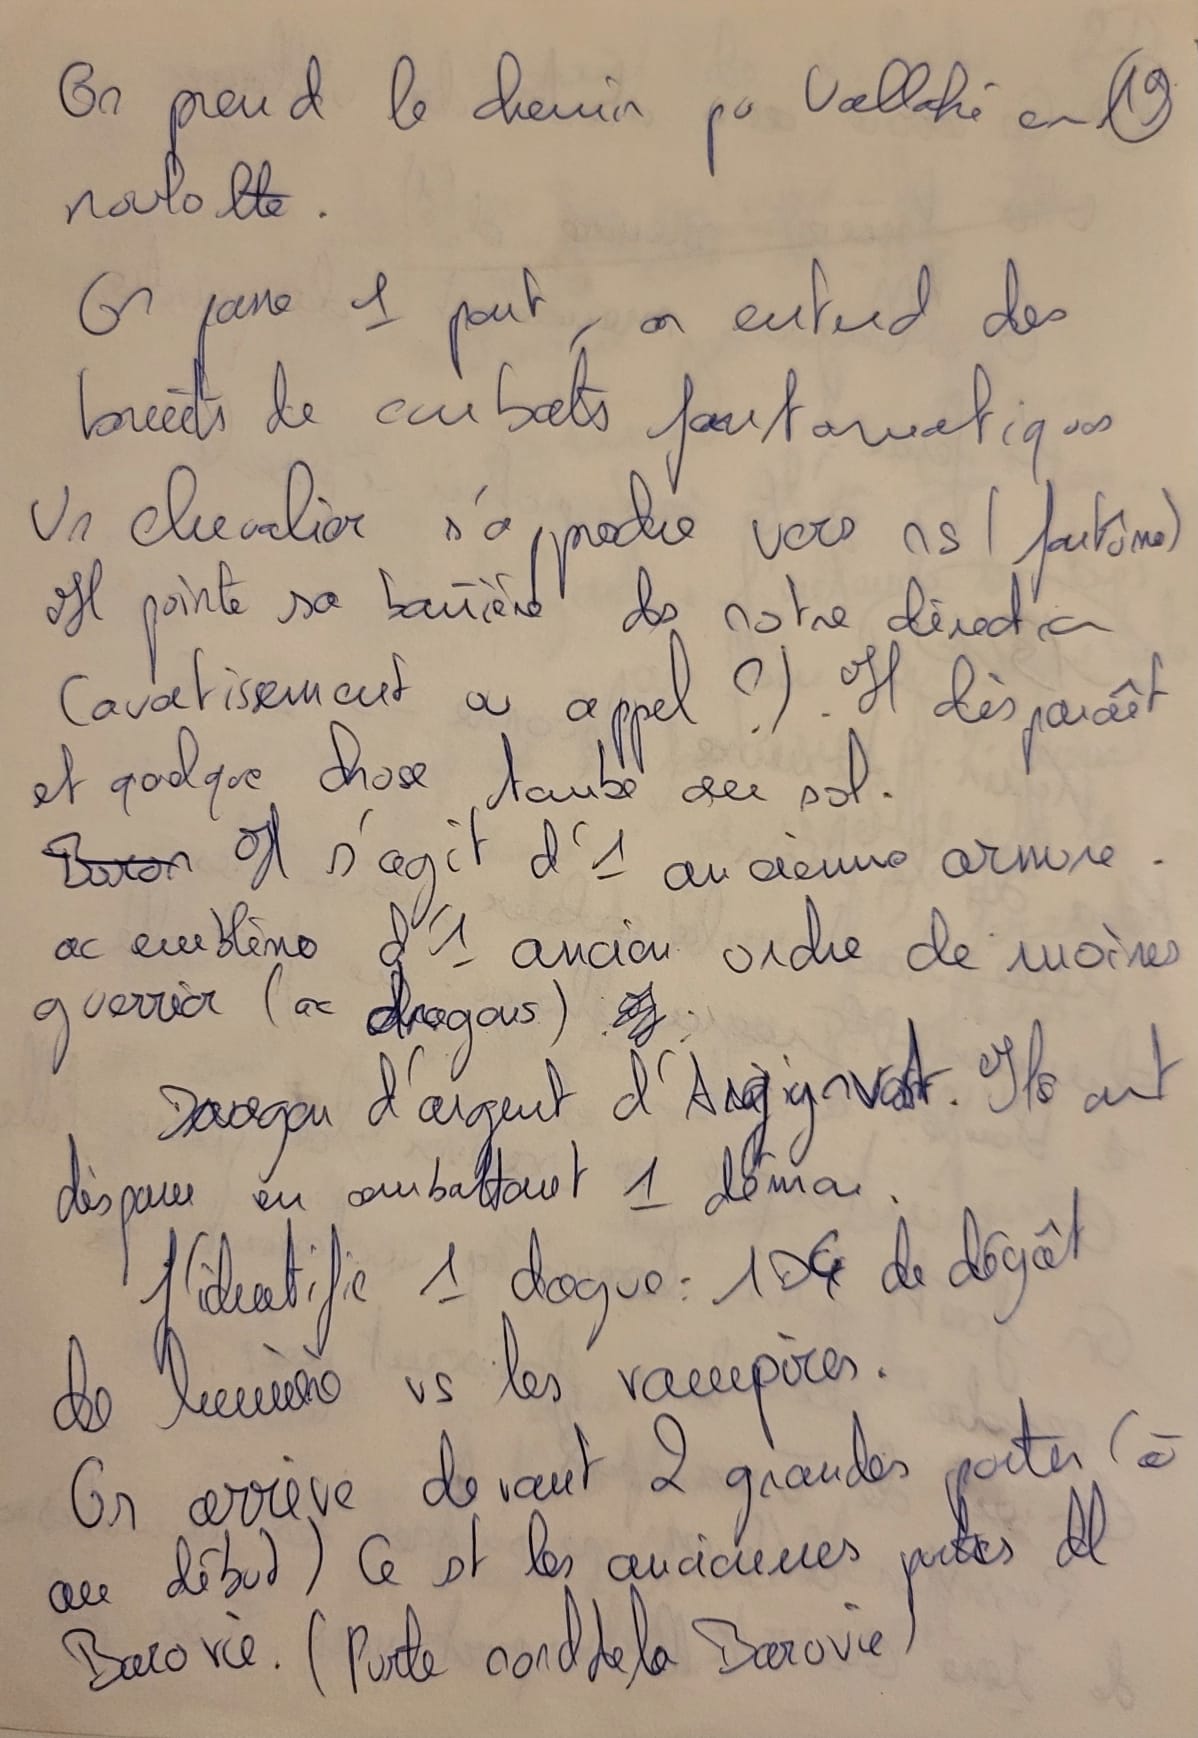 On prend le chemin pr Vallaki en (19)
roulotte.
On passe 1 pont, on entend des
bruits de combats fantomatiques
Un chevalier s'approche vers ns (fantôme)
Il pointe sa bannière ds notre direction
(avertissement ou appel ?). Il disparaît
et quelque chose tombe au sol.
Baron Il s'agit d'1 ancienne armure.
ac emblème d'1 ancien ordre de moines
guerrier (ac dragons)
Dragon d'argent d'Argynvost. Ils ont
disparu en combattant 1 démon.
J'identifie 1 dague : 1D4 de dégât
de lumière vs les vampires.
On arrive devant 2 grandes portes (à
au début) Ce st les anciennes portes
Barovie. (Porte nord de la Barovie)